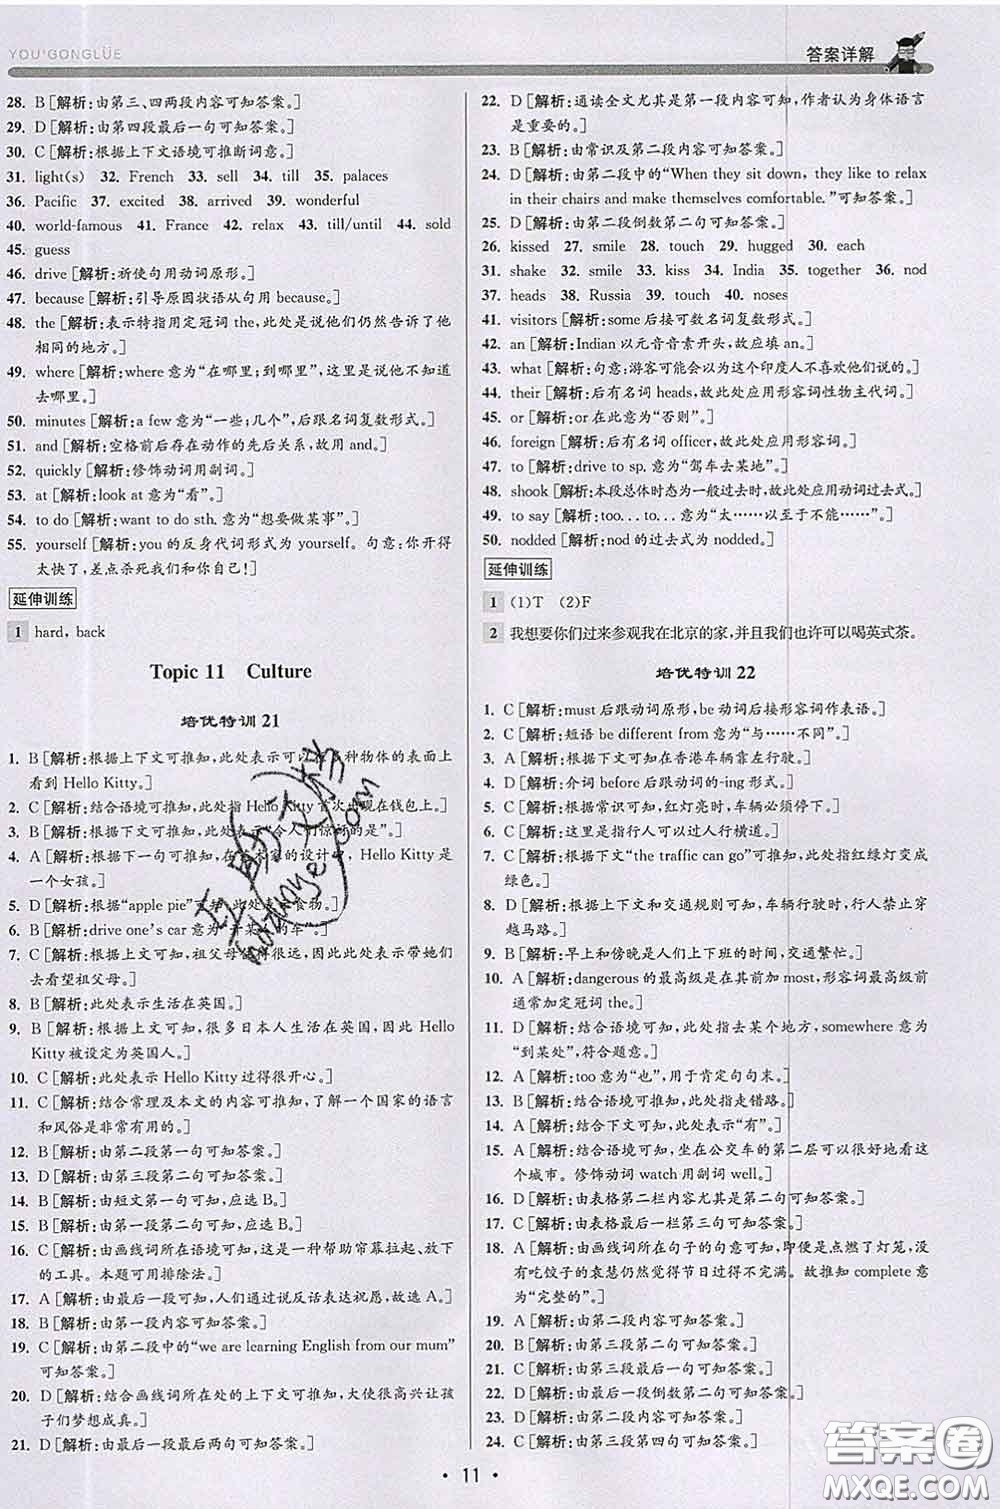 YOU'GONGLÜE
答案详解
28. B[解析:由第三、四两段内容可知答案。]
29. D[解析:由第四段最后一句可知答案。]
30. C[解析:根据上下文语境可推断词意。]
31. light(s) 32. French 33. sell 34. till 35. palaces
36. Pacific 37. excited 38. arrived 39. wonderful
40. world-famous 41. France 42. relax 43. till/until 44. sold
45. guess
46. drive[解析:祈使句用动词原形。]
47. because[解析:引导原因状语从句用 because。]
48. the[解析:表示特指用定冠词 the,此处是说他们仍然告诉了他
相同的地方。]
49. where[解析:where 意为“在哪里;到哪里”,这里是说他不知道
去哪里。]
50. minutes[解析:a few 意为“一些;几个”,后跟名词复数形式。]
51. and[解析:空格前后存在动作的先后关系,故用 and。]
52. quickly[解析:修饰动词用副词。]
53. at[解析:look at 意为“看”。]
54. to do[解析:want to do sth. 意为“想要做某事”。]
55. yourself[解析:you 的反身代词形式为 yourself。句意:你开得
太快了,差点杀死我们和你自己!]
延伸训练
1 hard, back
Topic 11 Culture
培优特训 21
1. B[解析:根据上下文可推知,此处表示可以在多种物体的表面上
看到 Hello Kitty。]
2. C[解析:结合语境可推知,此处指 Hello Kitty 首次出现在钱包上。]
3. C[解析:根据下文可推知,此处表示“令人们惊讶的是”。]
4. A[解析:根据下一句可推知,在艺术家的设计中,Hello Kitty 是
一个女孩。]
5. D[解析:根据“apple pie”可推知,此处表示食物。]
6. B[解析:drive one's car 意为“开某人的车”。]
7. C[解析:根据上文可推知,祖父母住得很远,此处表示带她们
去看望祖父母。]
8. B[解析:此处表示生活在英国。]
9. B[解析:根据上文可知,很多日本人生活在英国,因此 Hello
Kitty 被设定为英国人。]
10. C[解析:此处表示 Hello Kitty 过得很开心。]
11. C[解析:结合常理及本文的内容可推知,了解一个国家的语言
和风俗是非常有用的。]
12. B[解析:由第二段第一句可知答案。]
13. D[解析:由第三段第二句可知答案。]
14. B[解析:由短文第一句可知,应选 B。]
15. B[解析:由第一段第二句可知答案。]
16. C[解析:由画线词所在语境可知,这是一种帮助帘幕拉起、放下
的工具。本题可用排除法。]
17. A[解析:由最后一段可知,人们通过说反话表达祝愿,故选 A。]
18. B[解析:由第一段内容可知答案。]
19. C[解析:由第二段中的“we are learning English from our mum”
可知答案。]
20. D[解析:结合画线词所在处的上下文可推知,大使很高兴让孩
子们梦想成真。]
21. D[解析:由最后一段最后两句可知答案。]
22. D[解析:通读全文尤其是第一段内容可知,作者认为身体语言
是重要的。]
23. B[解析:由常识及第二段内容可知答案。]
24. D[解析:由第二段中的“When they sit down, they like to relax
in their chairs and make themselves comfortable.”可知答案。]
25. D[解析:由第二段倒数第二句可知答案。]
26. kissed 27. smile 28. touch 29. hugged 30. each
31. shake 32. smile 33. kiss 34. India 35. together 36. nod
37. heads 38. Russia 39. touch 40. noses
41. visitors[解析:some 后接可数名词复数形式。]
42. an[解析:Indian 以元音音素开头,故应填 an。]
43. what[解析:句意:游客可能会以为这个印度人不喜欢他们所说的。]
44. their[解析:后有名词 heads,故此处应用形容词性物主代词。]
45. or[解析:or 在此意为“否则”。]
46. foreign[解析:后有名词 officer,故此处应用形容词。]
47. to[解析:drive to sp. 意为“驾车去某地”。]
48. shook[解析:本段总体时态为一般过去时,故此处应用动词过去式。]
49. to say[解析:too... to... 意为“太……以至于不能……”。]
50. nodded[解析:nod 的过去式为 nodded。]
延伸训练
1 (1)T (2)F
2 我想要你们过来参观我在北京的家,并且我们也许可以喝英式茶。
培优特训 22
1. C[解析:must 后跟动词原形,be 动词后接形容词作表语。]
2. C[解析:短语 be different from 意为“与……不同”。]
3. A[解析:根据下文可推知在香港车辆靠左行驶。]
4. D[解析:介词 before 后跟动词的-ing 形式。]
5. C[解析:根据常识可知,红灯亮时,车辆必须停下。]
6. C[解析:这里是指行人可以过上行横道。]
7. C[解析:根据下文“the traffic can go”可推知,此处指红绿灯变成
绿色。]
8. D[解析:根据上下文和交通规则可知,车辆行驶时,行人禁止穿
越马路。]
9. B[解析:早上和傍晚是人们上下班的时间,交通繁忙。]
10. A[解析:dangerous 的最高级是在其前加 most,形容词最高级前
通常加定冠词 the。]
11. D[解析:结合语境可知,此处指去某个地方,somewhere 意为
“到某处”,符合题意。]
12. A[解析:too 意为“也”,用于肯定句句末。]
13. B[解析:结合语境可推知,此处指走错路。]
14. C[解析:结合下文可知,此处表示“有”。]
15. A[解析:结合语境可知,坐在公交车的第二层可以很好地看
这个城市。修饰动词 watch 用副词 well。]
16. D[解析:由表格第二栏内容尤其是第二句可知答案。]
17. C[解析:由表格最后一栏第三句可知答案。]
18. A[解析:由画线词所在句子的句意可知,即便是点燃了灯笼,
没有吃饺子的袁慧仍然觉得节日过得不完满。故推知 complete 意为
“完整的”。]
19. A[解析:由第二段内容可知答案。]
20. B[解析:由第三段第二句可知答案。]
21. C[解析:由第三段最后一句可知答案。]
22. D[解析:由最后一段倒数第二句可知答案。]
23. D[解析:由第二段第二句可知答案。]
24. C[解析:由第三段第四句可知答案。]
· 11 ·
答案圈
MXQE.COM